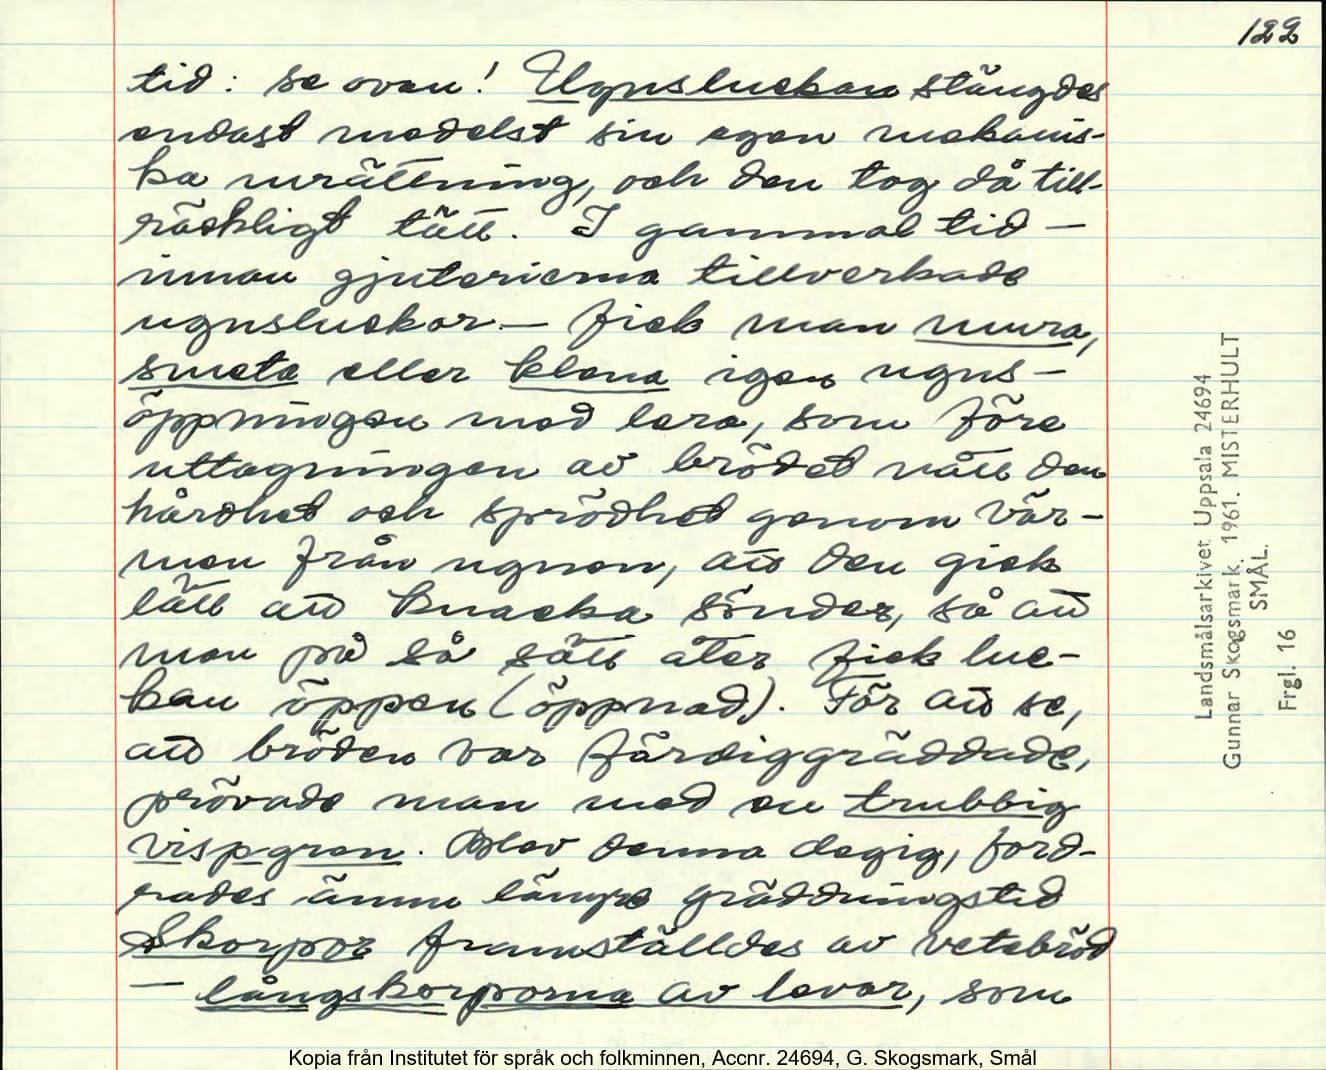 122
tid: se ovan! Ugnsluckan stängdes
endast medelst sin egen mekanis-
ka inrättning, och den tog då till-
räckligt tätt. I gammal tid —
innan gjuterierna tillverkade
ugnsluckor — fick man mura,
smeta eller klena igen ugns-
öppningen med lera, som före
uttagningen av brödet nått den
hårdhet och sprödhet genom vär-
men från ugnen, att den gick
lätt att knacka sönder, så att
man på så sätt åter fick luc-
kan öppen (öppnad). För att se,
att bröden var färdiggräddade,
prövade man med en trubbig
vispgren. Blev denna degig, ford-
rades ännu längre gräddningstid
Skorpor framställdes av vetebröd
— långskorporna av levar, som
Landsmålsarkivet Uppsala 24694
Gunnar Skogsmark. 1961. MISTERHULT
SMÅL.
Frgl. 16
Kopia från Institutet för språk och folkminnen, Accnr. 24694, G. Skogsmark, Smål